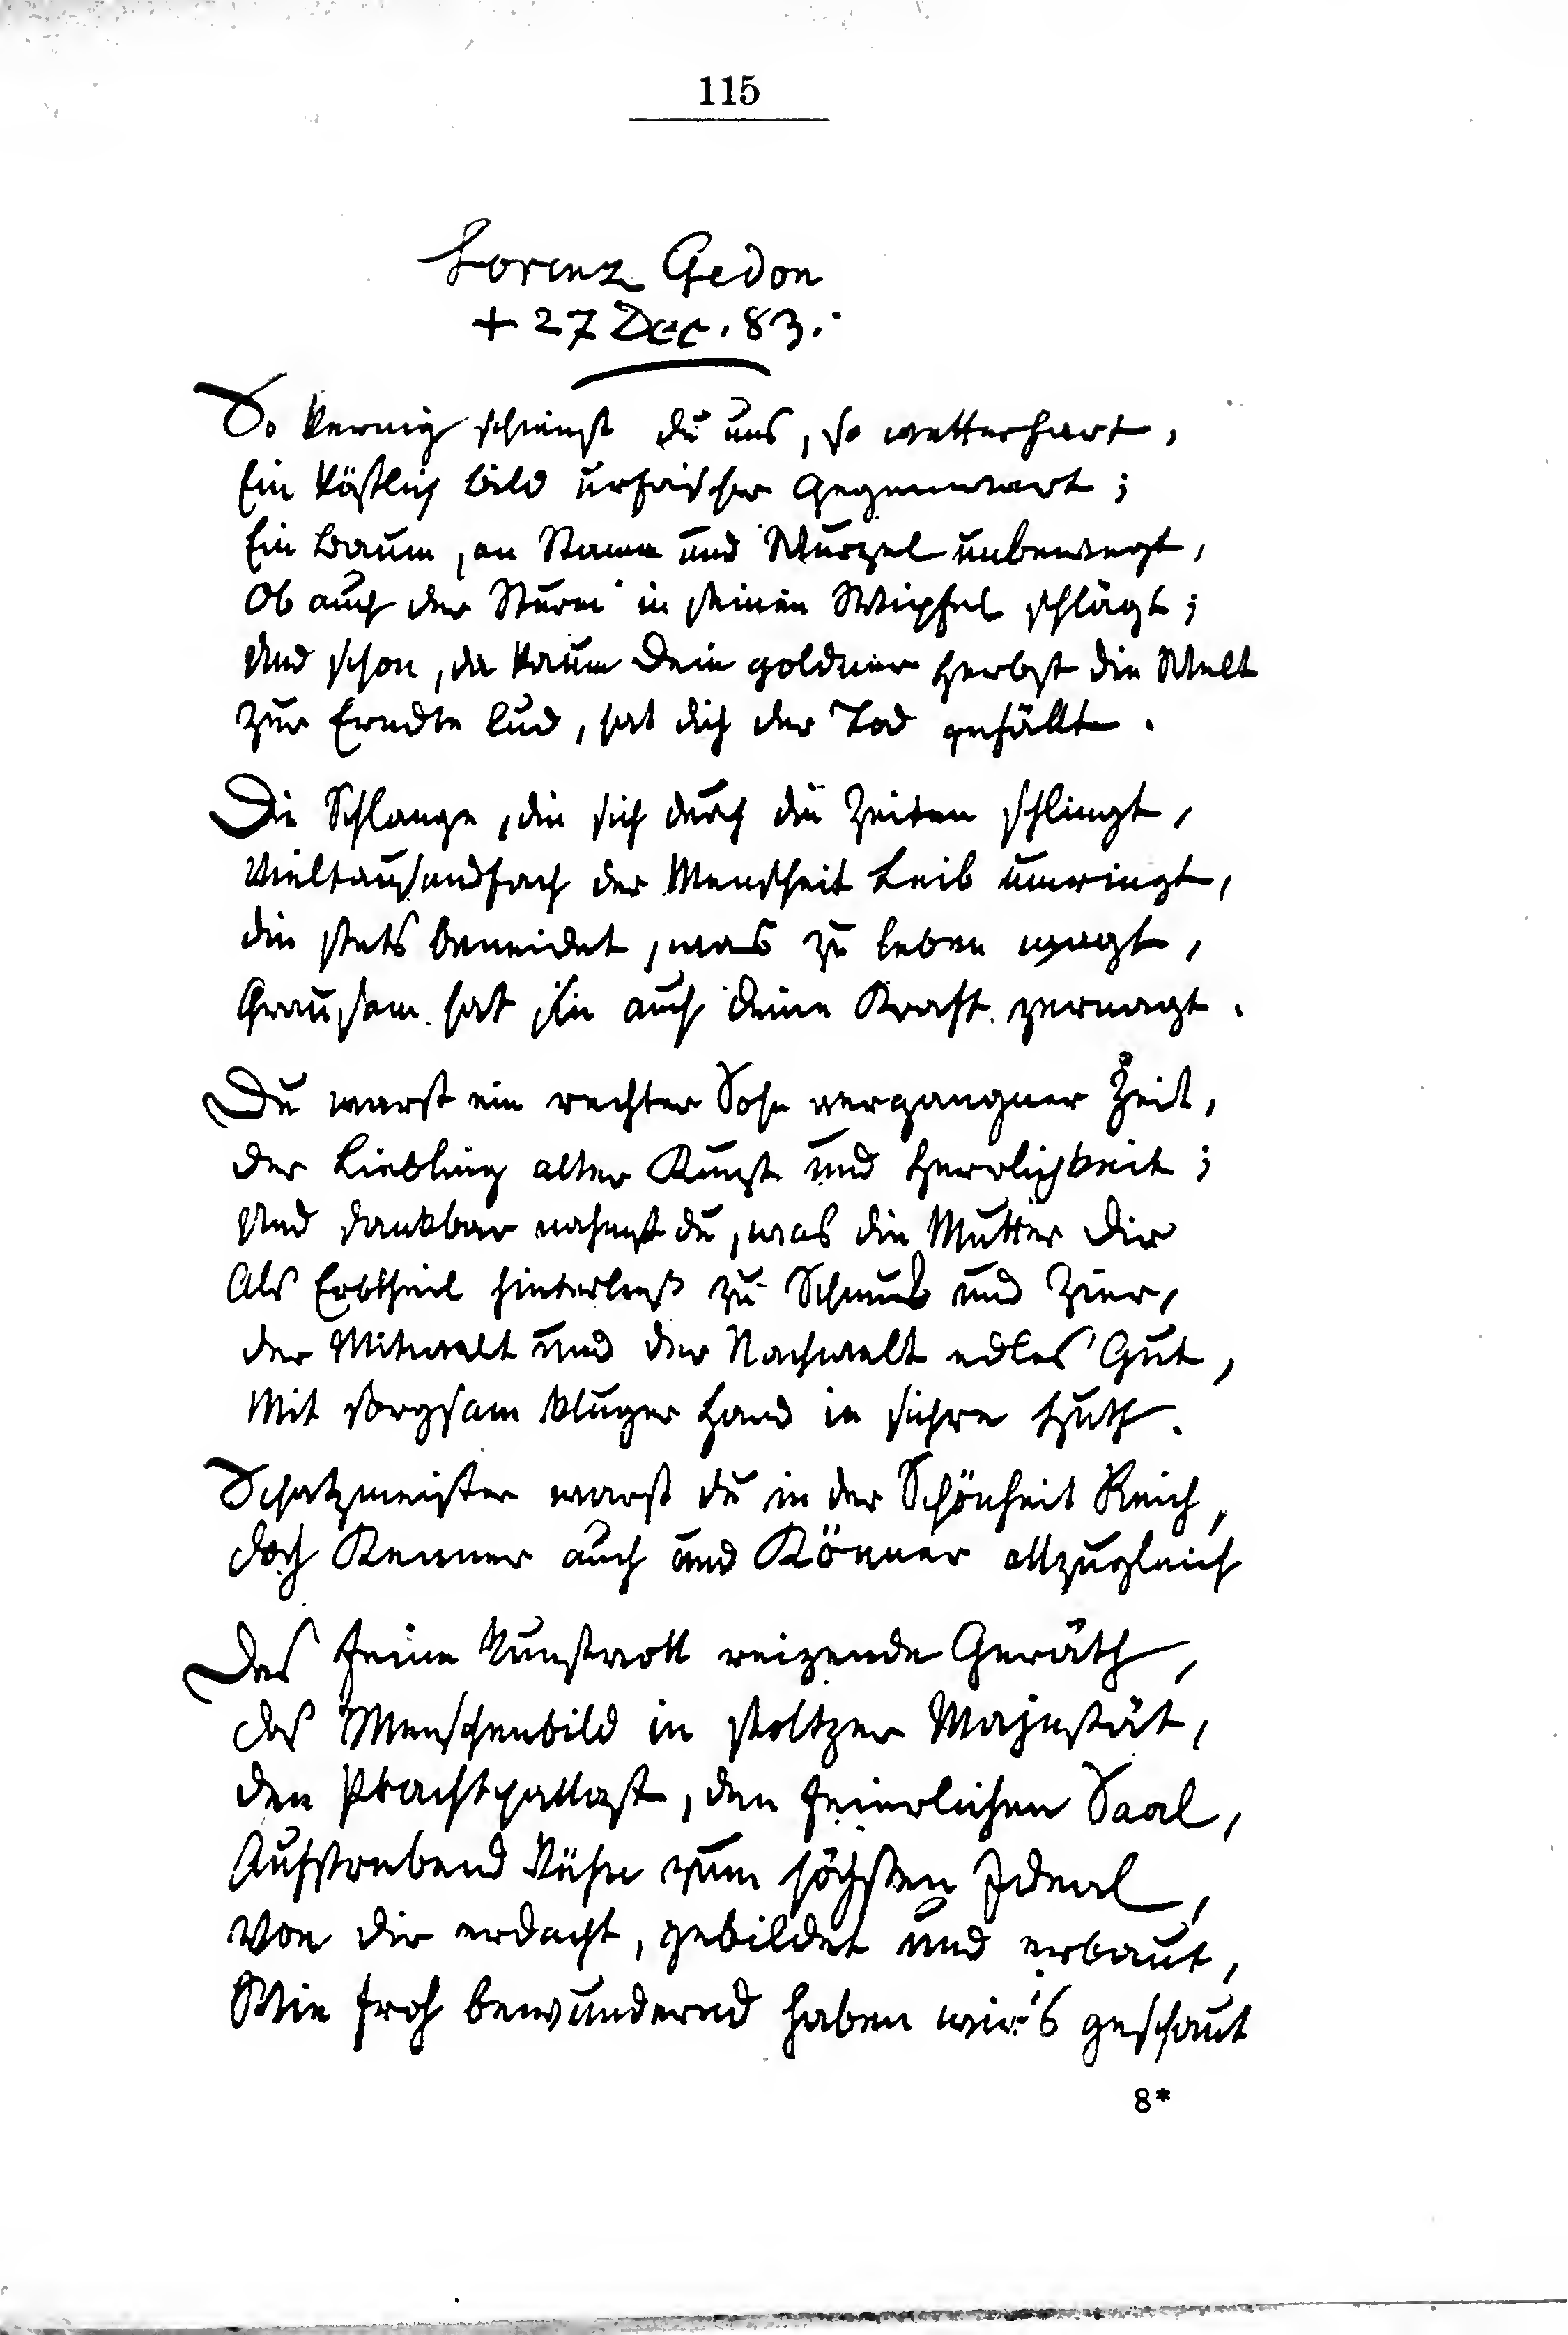 115
Lorenz Gedon
+ 27 Dec. 83.
So kernig schienst du uns, so wetterhart,
Ein köstlich Bild urfrischer Gegenwart;
Ein Baum, an Stamm und Wurzel unbewegt,
Ob auch der Sturm in seinen Wipfel schlägt;
Und schon, da kaum dein goldner Herbst die Welt
Zur Erndte lud, hat dich der Tod gefällt.
Die Schlange, die sich durch die Zeiten schlingt,
Vieltausendfach der Menschheit Leib umringt,
die stets beneidet, was zu leben wagt,
Grausam hat sie auch deine Kraft zernagt.
Du warst ein rechter Sohn vergangner Zeit,
der Liebling alter Kunst und Herrlichkeit;
Und dankbar nahmst du, was die Mutter dir
Als Erbtheil hinterließ zu Schmuck und Zier,
der Mitwelt und der Nachwelt edles Gut,
Mit sorgsam kluger Hand in sichre Huth.
Schatzmeister warst du in der Schönheit Reich,
doch Kenner auch und Könner allzugleich
Das feine kunstvoll reizende Geräth,
das Menschenbild in stoltzer Majestät,
den Prachtpallast, den feierlichen Saal,
Aufstrebend kühn zum höchsten Ideal,
Von dir erdacht, gebildet und erbaut,
Wie froh bewundernd haben wir's geschaut
8*